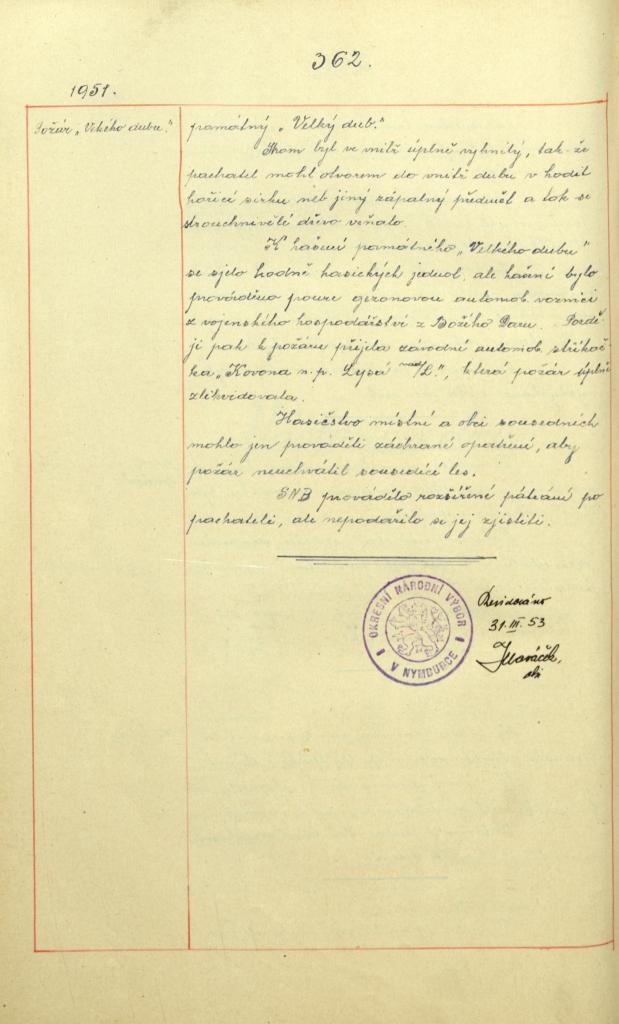 362.
1951.
Požár „Velkého dubu."
památný „Velký dub."
Strom byl ve vnitř úplně vyhnilý, tak-že
pachatel mohl otvorem do vnitř dubu v hodit
hořící sirku neb jiný zápalný předmět a tak se
strouchnivělé dřevo vzňalo.
K hašení památného „Velkého dubu"
se sjelo hodně hasických jednot, ale hašení bylo
prováděno pouze gezonovou automob. voznicí
z vojenského hospodářství z Božího Daru. Pozdě-
ji pak k požáru přijela závodní automob. stříkač-
ka „Kovona n. p. Lysá nad/L.", která požár úplně
zlikvidovala.
Hasičstvo místní a obcí sousedních
mohlo jen prováděti záchrané opatření, aby
požár neuchvátil sousedící les.
SNB provádělo rozšířené pátrání po
pachateli, ale nepodařilo se jej zjistiti.
OKRESNÍ NÁRODNÍ VÝBOR
V NYMBURCE
Revidováno
31. III. 53